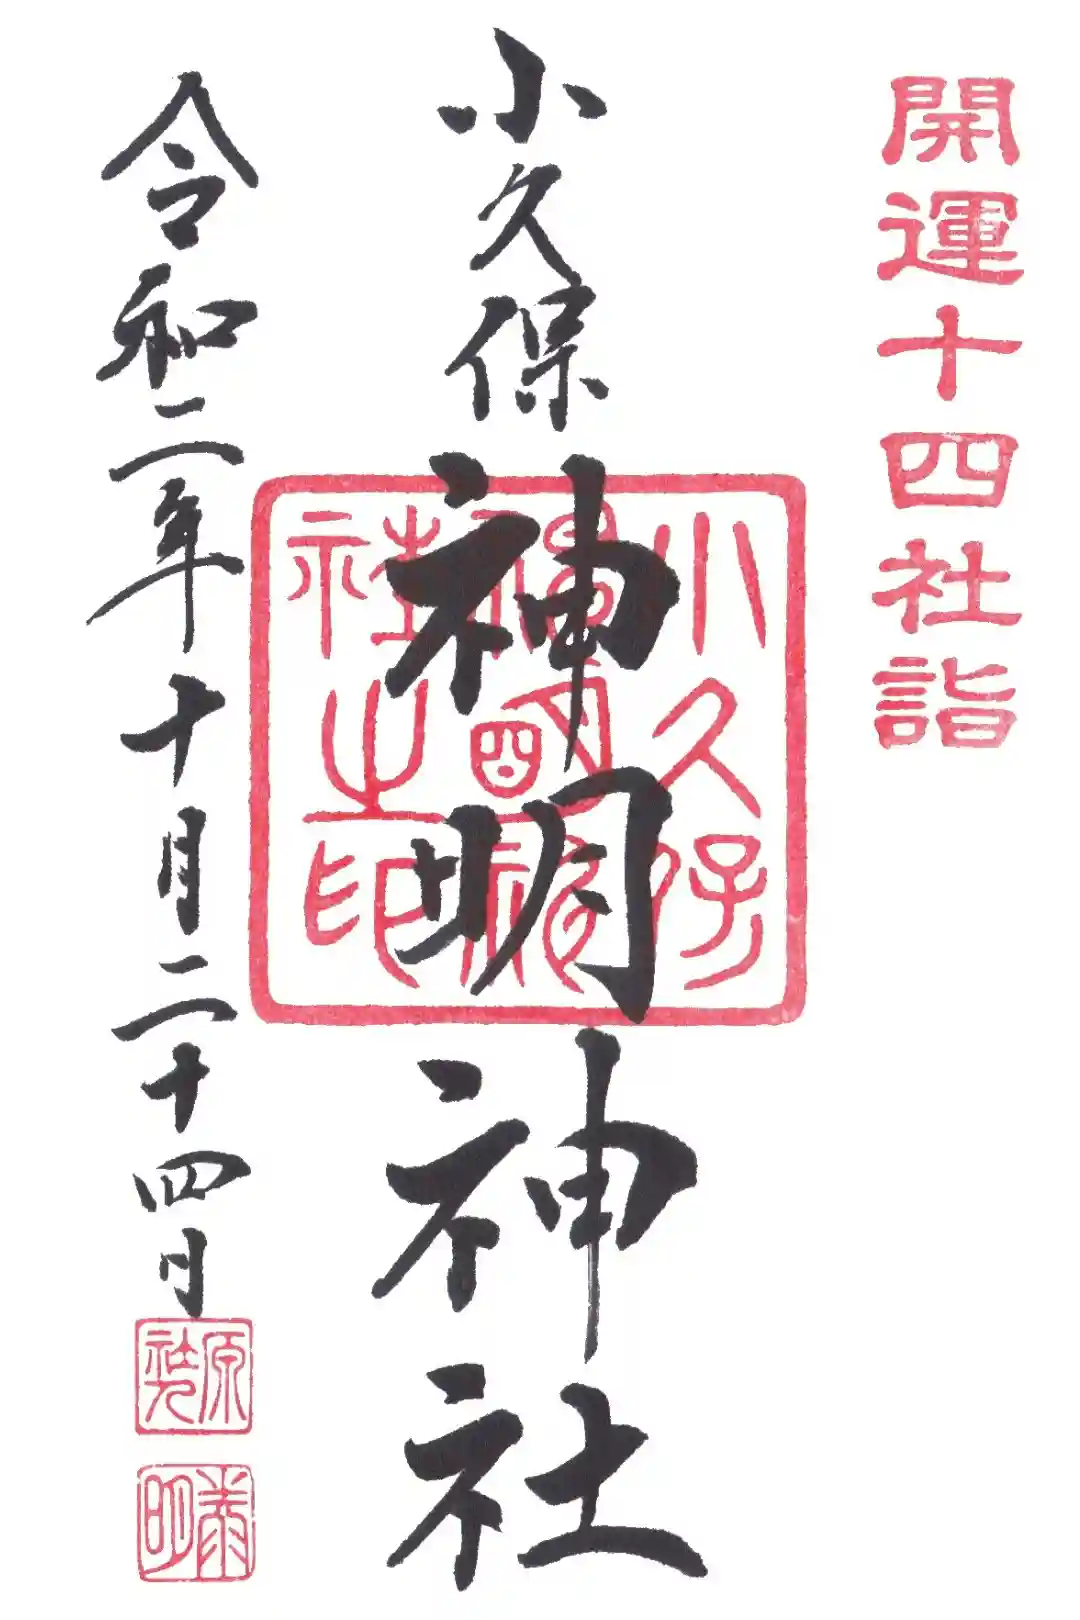 開運十四社詣
小久保神明神社
小久保
社之印
令和二年十月二十四日